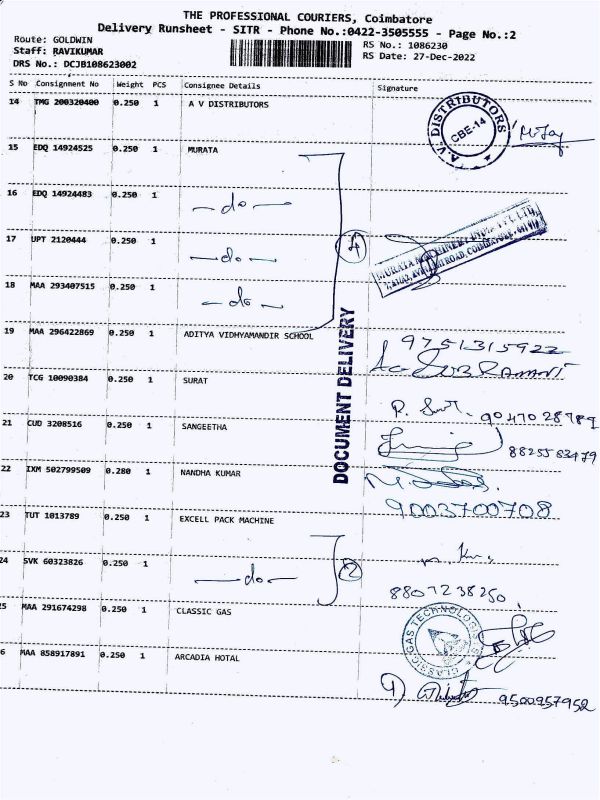 THE PROFESSIONAL COURIERS, Coimbatore
Delivery Runsheet - SITR - Phone No.:0422-3505555 - Page No.:2
Route: GOLDWIN
RS No.: 1086230
Staff: RAVIKUMAR
RS Date: 27-Dec-2022
DRS No.: DCJB108623002
S No Consignment No Weight PCS Consignee Details Signature
14 TMG 200320400 0.250 1 A V DISTRIBUTORS
A.V. DISTRIBUTORS
CBE-14
15 EDQ 14924525 0.250 1 MURATA
16 EDQ 14924483 0.250 1 -do-
17 UPT 2120444 0.250 1 -do-
4
MURATA MACHINERY INDIA PVT. LTD.
18 MAA 293407515 0.250 1 -do-
DOCUMENT DELIVERY
19 MAA 296422869 0.250 1 ADITYA VIDHYAMANDIR SCHOOL
9751315922
20 TCG 10090384 0.250 1 SURAT
9047028789
21 CUD 3208516 0.250 1 SANGEETHA
8825563479
22 IXM 502799509 0.280 1 NANDHA KUMAR
9003700708
23 TUT 1013789 0.250 1 EXCELL PACK MACHINE
24 SVK 60323826 0.250 1 -do-
2
8807238250
5 MAA 291674298 0.250 1 CLASSIC GAS
CLASSIC GAS TECHNOLOGIES
6 MAA 858917891 0.250 1 ARCADIA HOTAL
9500957952